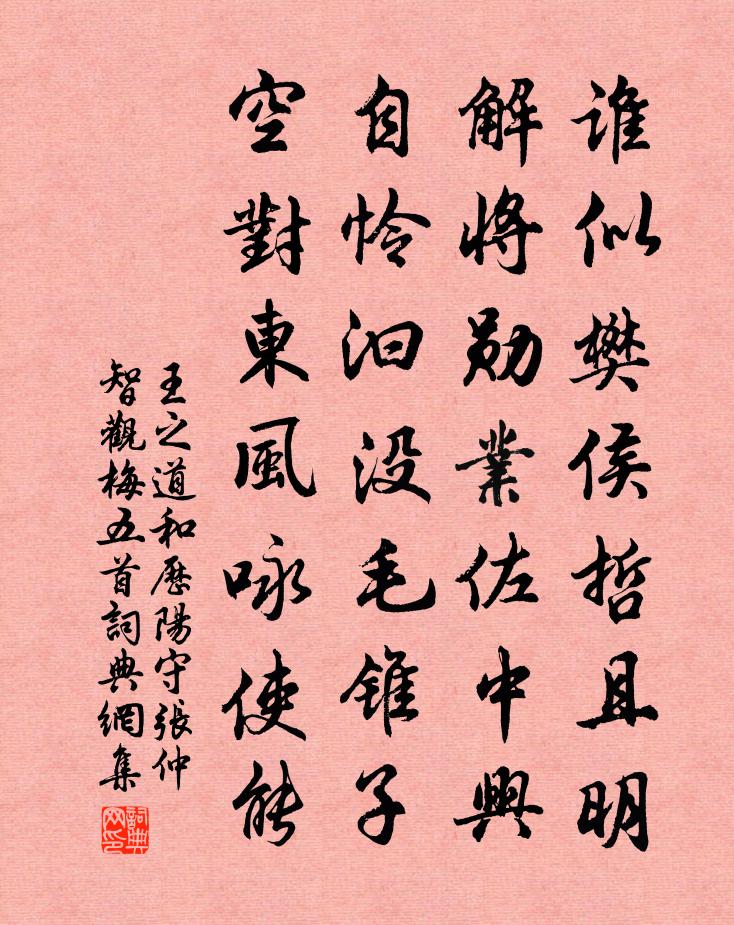 谁似樊侯哲且明
解将勋業佐中興
自怜汩没毛锥子
空對東風咏使能
王之道和歷陽守張仲
智觀梅五首詞典網集
詞典网印